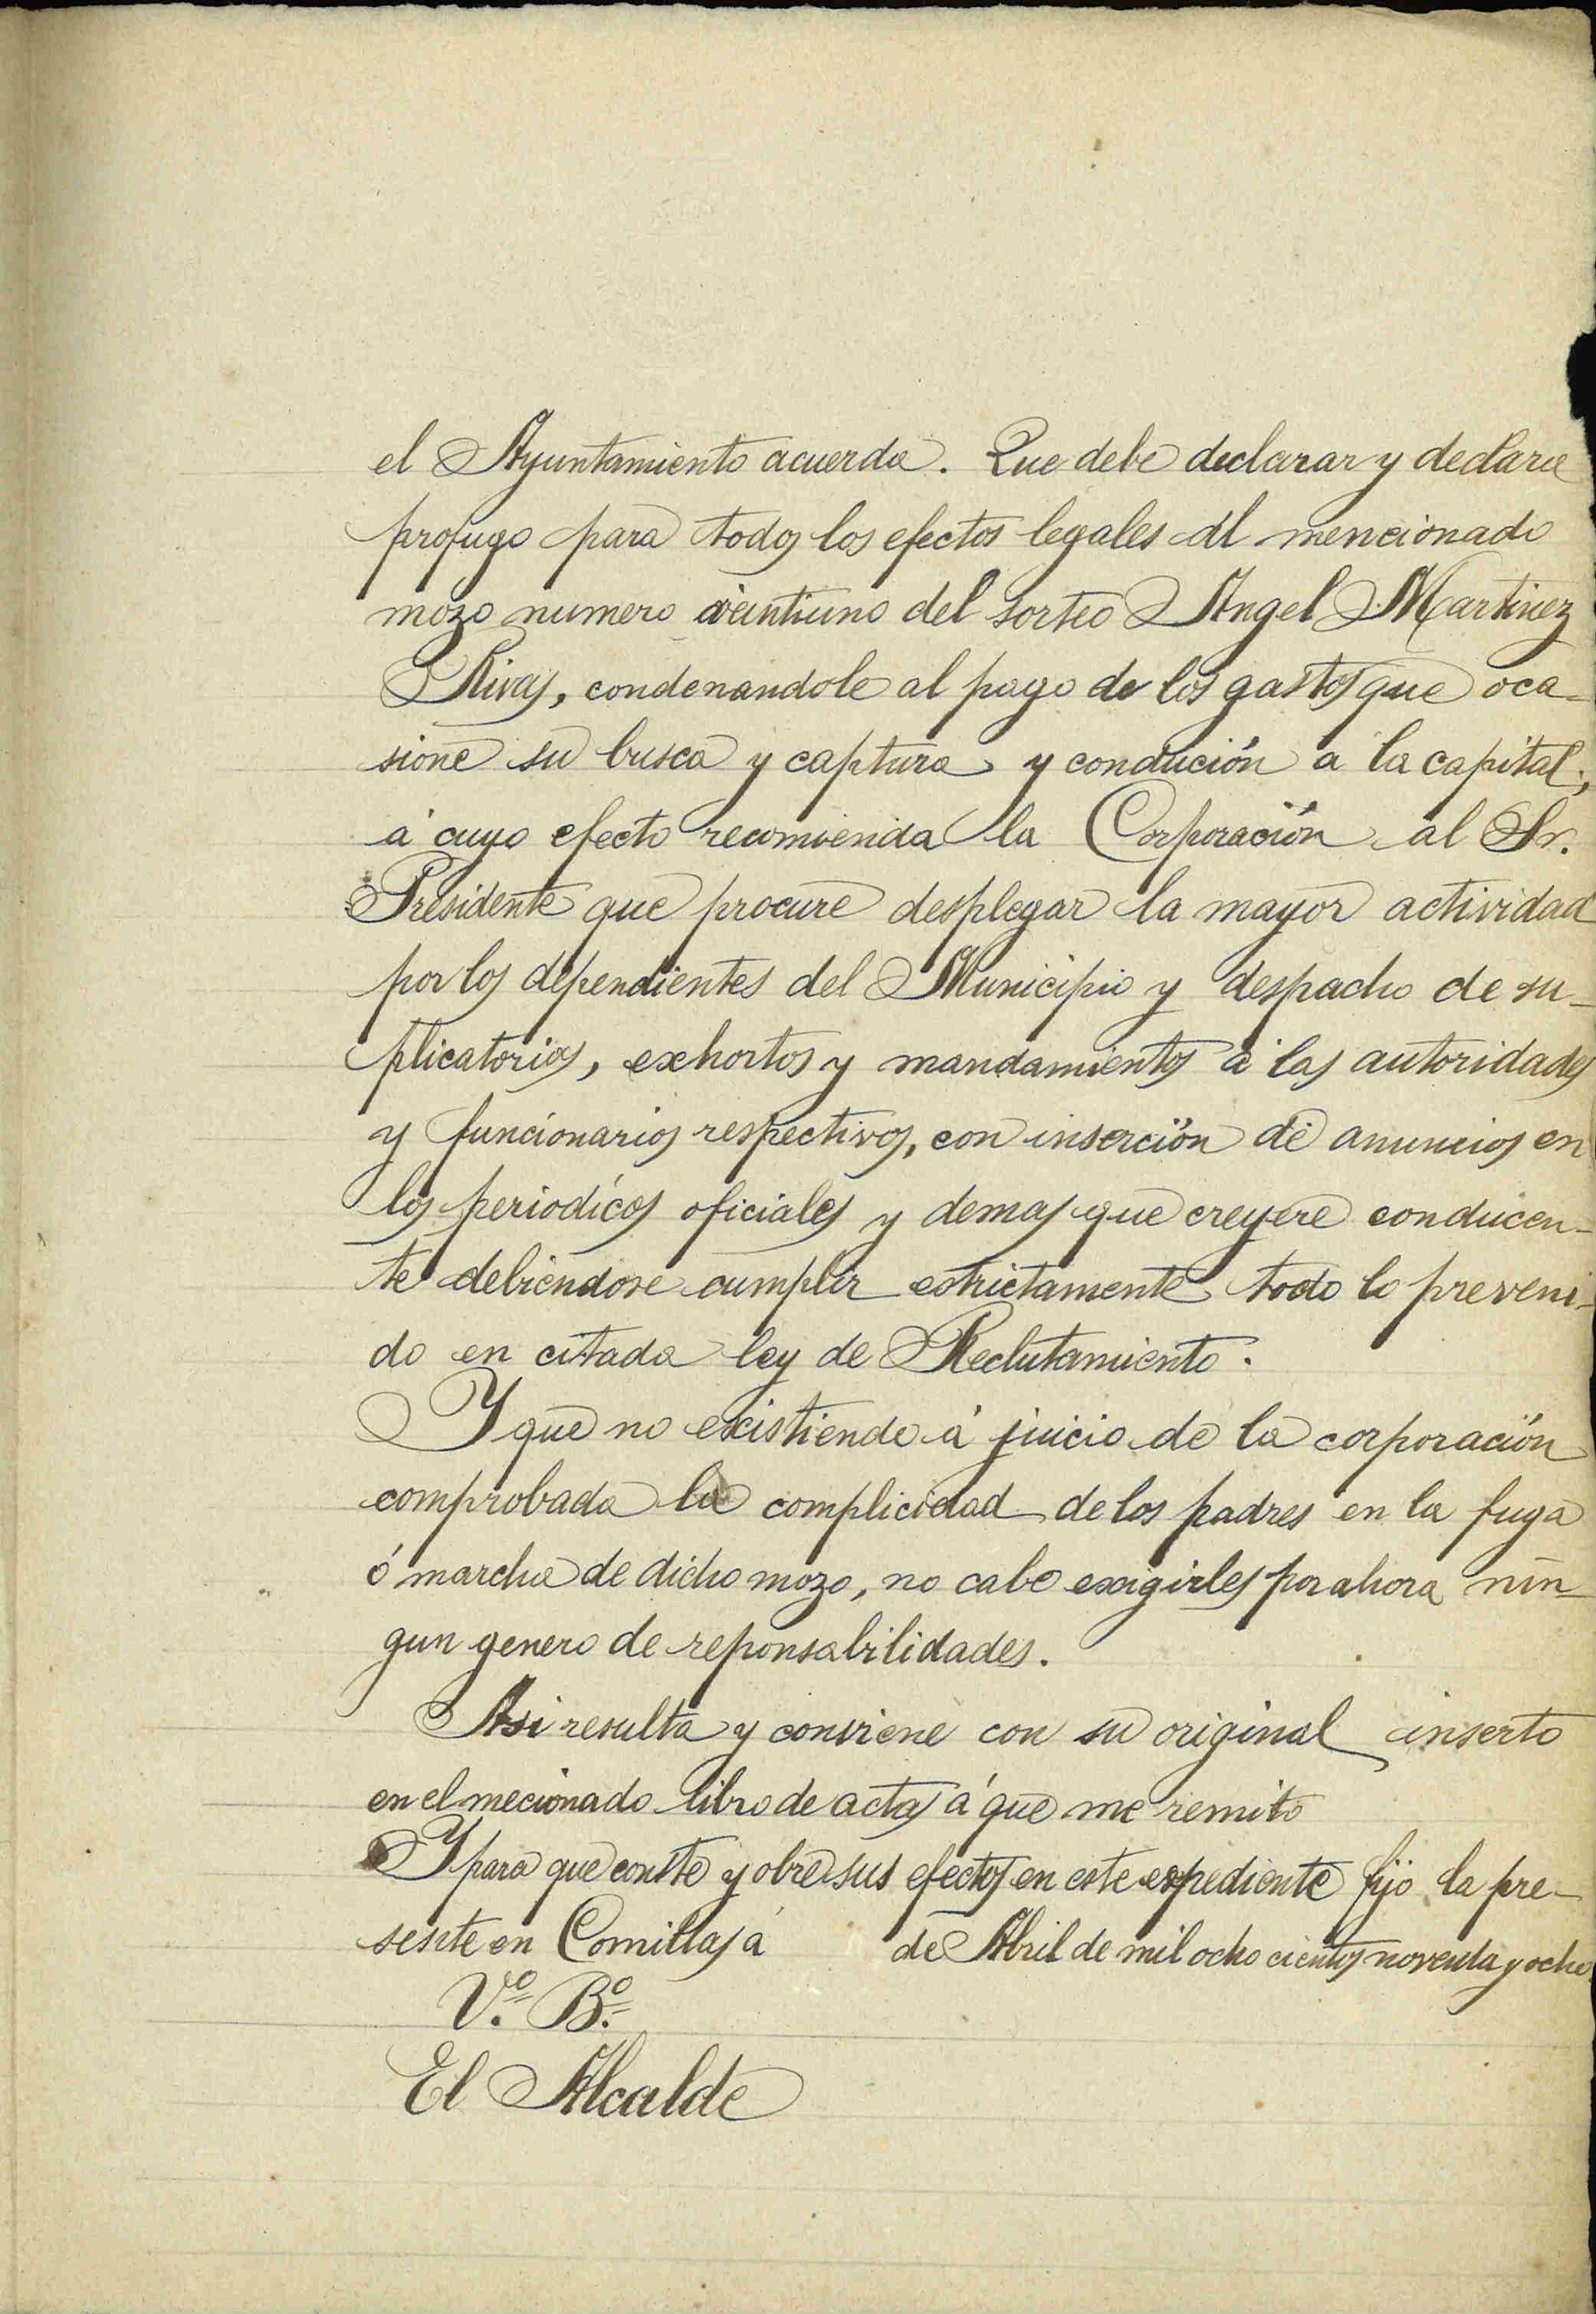 el Ayuntamiento acuerda. Que debe declarar y declara
profugo para todos los efectos legales al mencionado
mozo numero veintiuno del sorteo Angel Martinez
Rivas, condenandole al pago de los gastos que oca-
sione su busca y captura y condución a la capital;
á cuyo efecto recomienda la Corporación al Sr.
Presidente que procure desplegar la mayor actividad
por los dependientes del Municipio y despacho de su-
plicatorios, exhortos y mandamientos á las autoridades
y funcionarios respectivos, con inserción de anuncios en
los periodicos oficiales y demas que creyere conducen-
te debiendose cumplir estrictamente todo lo preveni-
do en citada ley de Reclutamiento.
Y que no existiendo á juicio de la corporación
comprobada la complicidad de los padres en la fuga
ó marcha de dicho mozo, no cabe exigirles por ahora nin-
gun genero de reponsabilidades.
Asi resulta y conviene con su original inserto
en el mecionado libro de actas á que me remito
Y para que conste y obre sus efectos en este expediente fijo la pre-
sente en Comillas á de Abril de mil ochocientos noventa y ocho
Vº. Bº.
El Alcalde